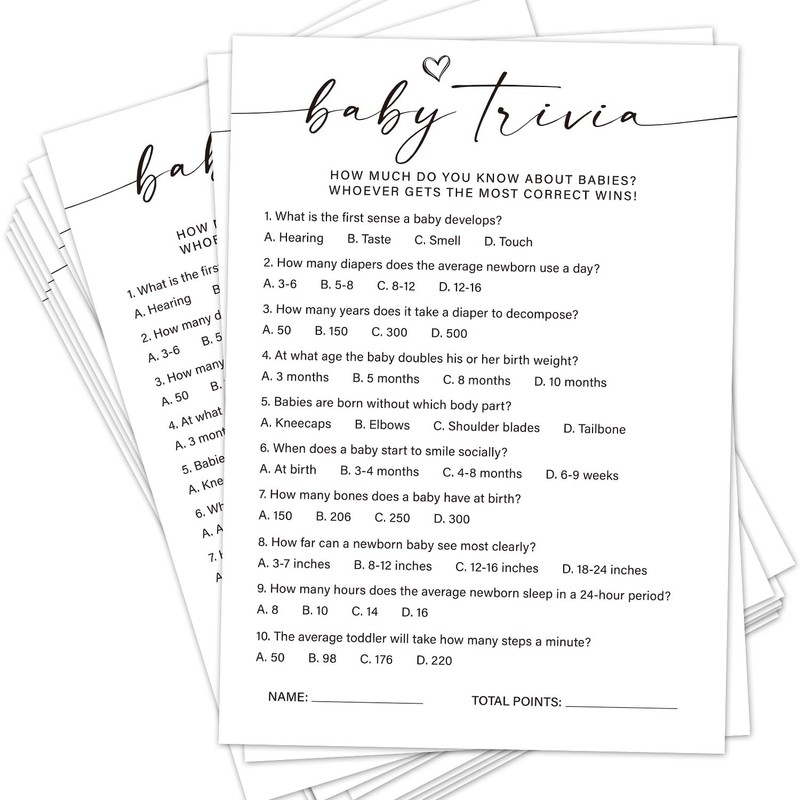 baby trivia
HOW MUCH DO YOU KNOW ABOUT BABIES?
WHOEVER GETS THE MOST CORRECT WINS!
1. What is the first sense a baby develops?
A. Hearing B. Taste C. Smell D. Touch
2. How many diapers does the average newborn use a day?
A. 3-6 B. 5-8 C. 8-12 D. 12-16
3. How many years does it take a diaper to decompose?
A. 50 B. 150 C. 300 D. 500
4. At what age the baby doubles his or her birth weight?
A. 3 months B. 5 months C. 8 months D. 10 months
5. Babies are born without which body part?
A. Kneecaps B. Elbows C. Shoulder blades D. Tailbone
6. When does a baby start to smile socially?
A. At birth B. 3-4 months C. 4-8 months D. 6-9 weeks
7. How many bones does a baby have at birth?
A. 150 B. 206 C. 250 D. 300
8. How far can a newborn baby see most clearly?
A. 3-7 inches B. 8-12 inches C. 12-16 inches D. 18-24 inches
9. How many hours does the average newborn sleep in a 24-hour period?
A. 8 B. 10 C. 14 D. 16
10. The average toddler will take how many steps a minute?
A. 50 B. 98 C. 176 D. 220
NAME: TOTAL POINTS:
bab
HOW
WHOE
1. What is the firs
A. Hearing B
2. How many d
A. 3-6 B. 5
3. How many
A. 50 B.
4. At what
A. 3 mont
5. Babie
A. Kne
6. Wh
A. A
7. H
A.